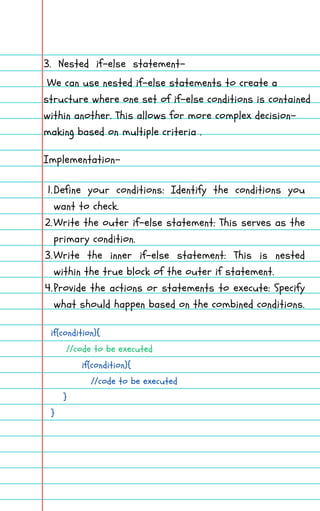 3. Nested if-else statement-
We can use nested if-else statements to create a
structure where one set of if-else conditions is contained
within another. This allows for more complex decision-
making based on multiple criteria .
Implementation-
1.Define your conditions: Identify the conditions you
want to check.
2.Write the outer if-else statement: This serves as the
primary condition.
3.Write the inner if-else statement: This is nested
within the true block of the outer if statement.
4.Provide the actions or statements to execute: Specify
what should happen based on the combined conditions.
if(condition){
//code to be executed
if(condition){
//code to be executed
}
}